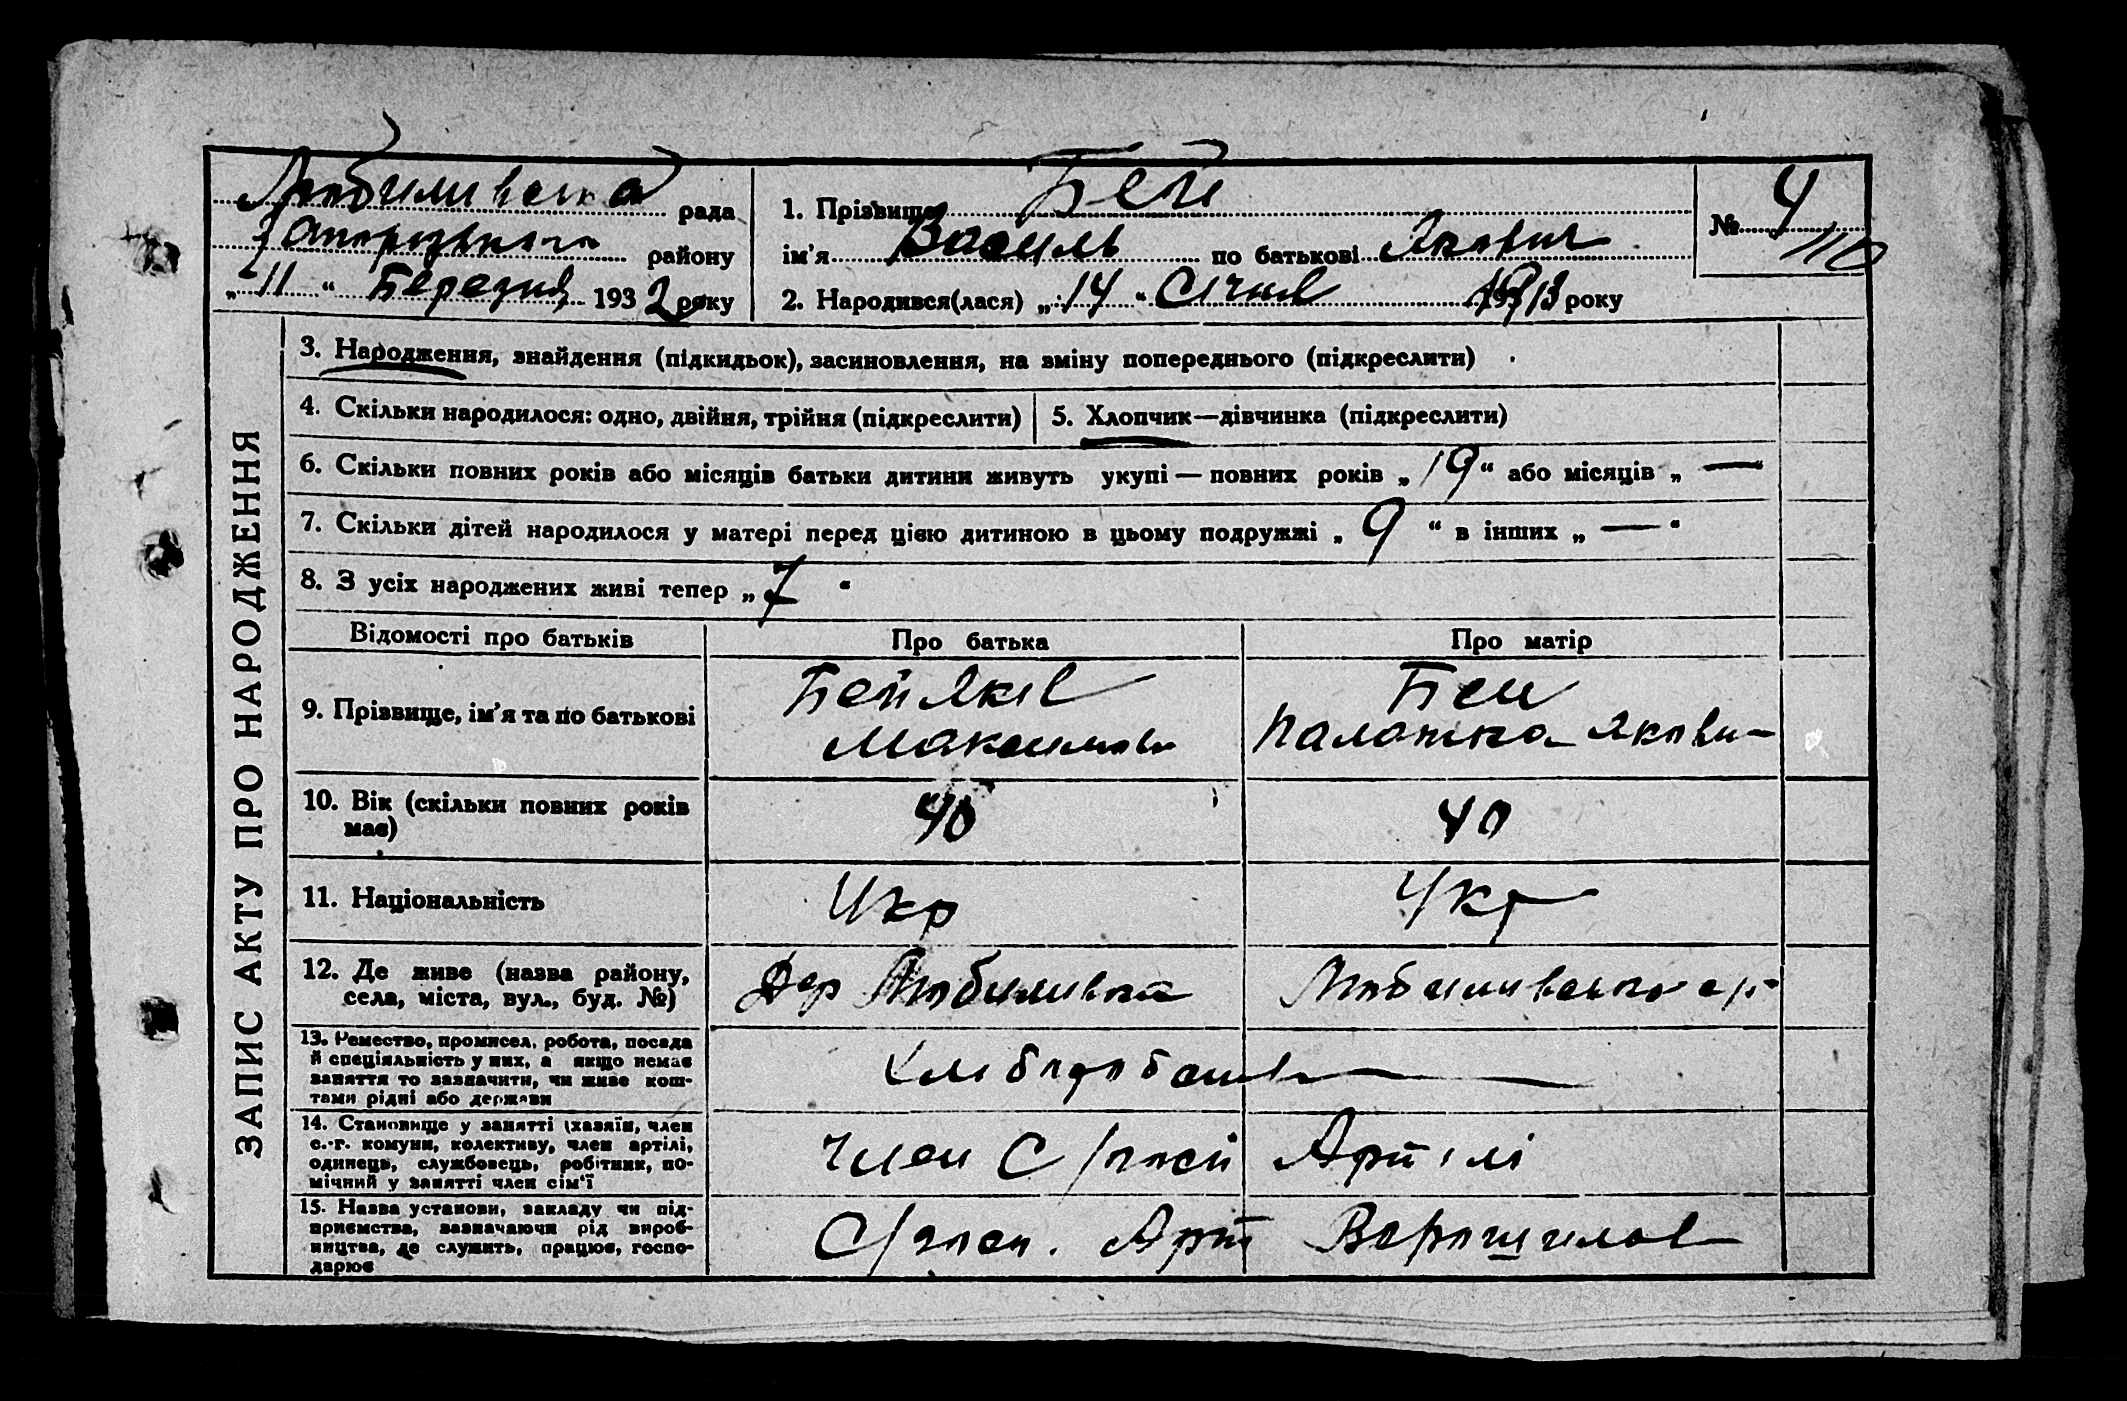 Любимивська рада
Запорізького району
„11“ Березня 1932 року
1. Прізвище Бей
ім'я Василь по батькові Якович
2. Народився(лася) „14“ Січня 1913 року
№ 4
110
ЗАПИС АКТУ ПРО НАРОДЖЕННЯ
3. Народження, знайдення (підкидьок), засиновлення, на зміну попереднього (підкреслити)
4. Скільки народилося: одно, двійня, трійня (підкреслити) 5. Хлопчик—дівчинка (підкреслити)
6. Скільки повних років або місяців батьки дитини живуть укупі — повних років „19“ або місяців „—“
7. Скільки дітей народилося у матері перед цією дитиною в цьому подружжі „9“ в інших „—“
8. З усіх народжених живі тепер „7“
Відомості про батьків Про батька Про матір
9. Прізвище, ім'я та по батькові
Бей Яків
Максимов
Бей
Палажка Якови-
10. Вік (скільки повних років
має)
40 40
11. Національність Укр Укр
12. Де живе (назва району,
села, міста, вул., буд. №)
Дер Любимивка Любимивської с/р
13. Ремество, промисел, робота, посада
й спеціяльність у них, а якщо немає
заняття то зазначити, чи живе кош-
тами рідні або держави
Хлиборобаив
14. Становище у занятті (хазяїн, член
с.-г. комуни, колективу, член артілі,
одинець, службовець, робітник, по-
мічний у занятті член сім'ї
Член С/госп Артілі
15. Назва установи, закладу чи під-
приємства, зазначаючи рід вироб-
ництва, де служить, працює, госпо-
дарює
С/госп. Арт Ворошилов